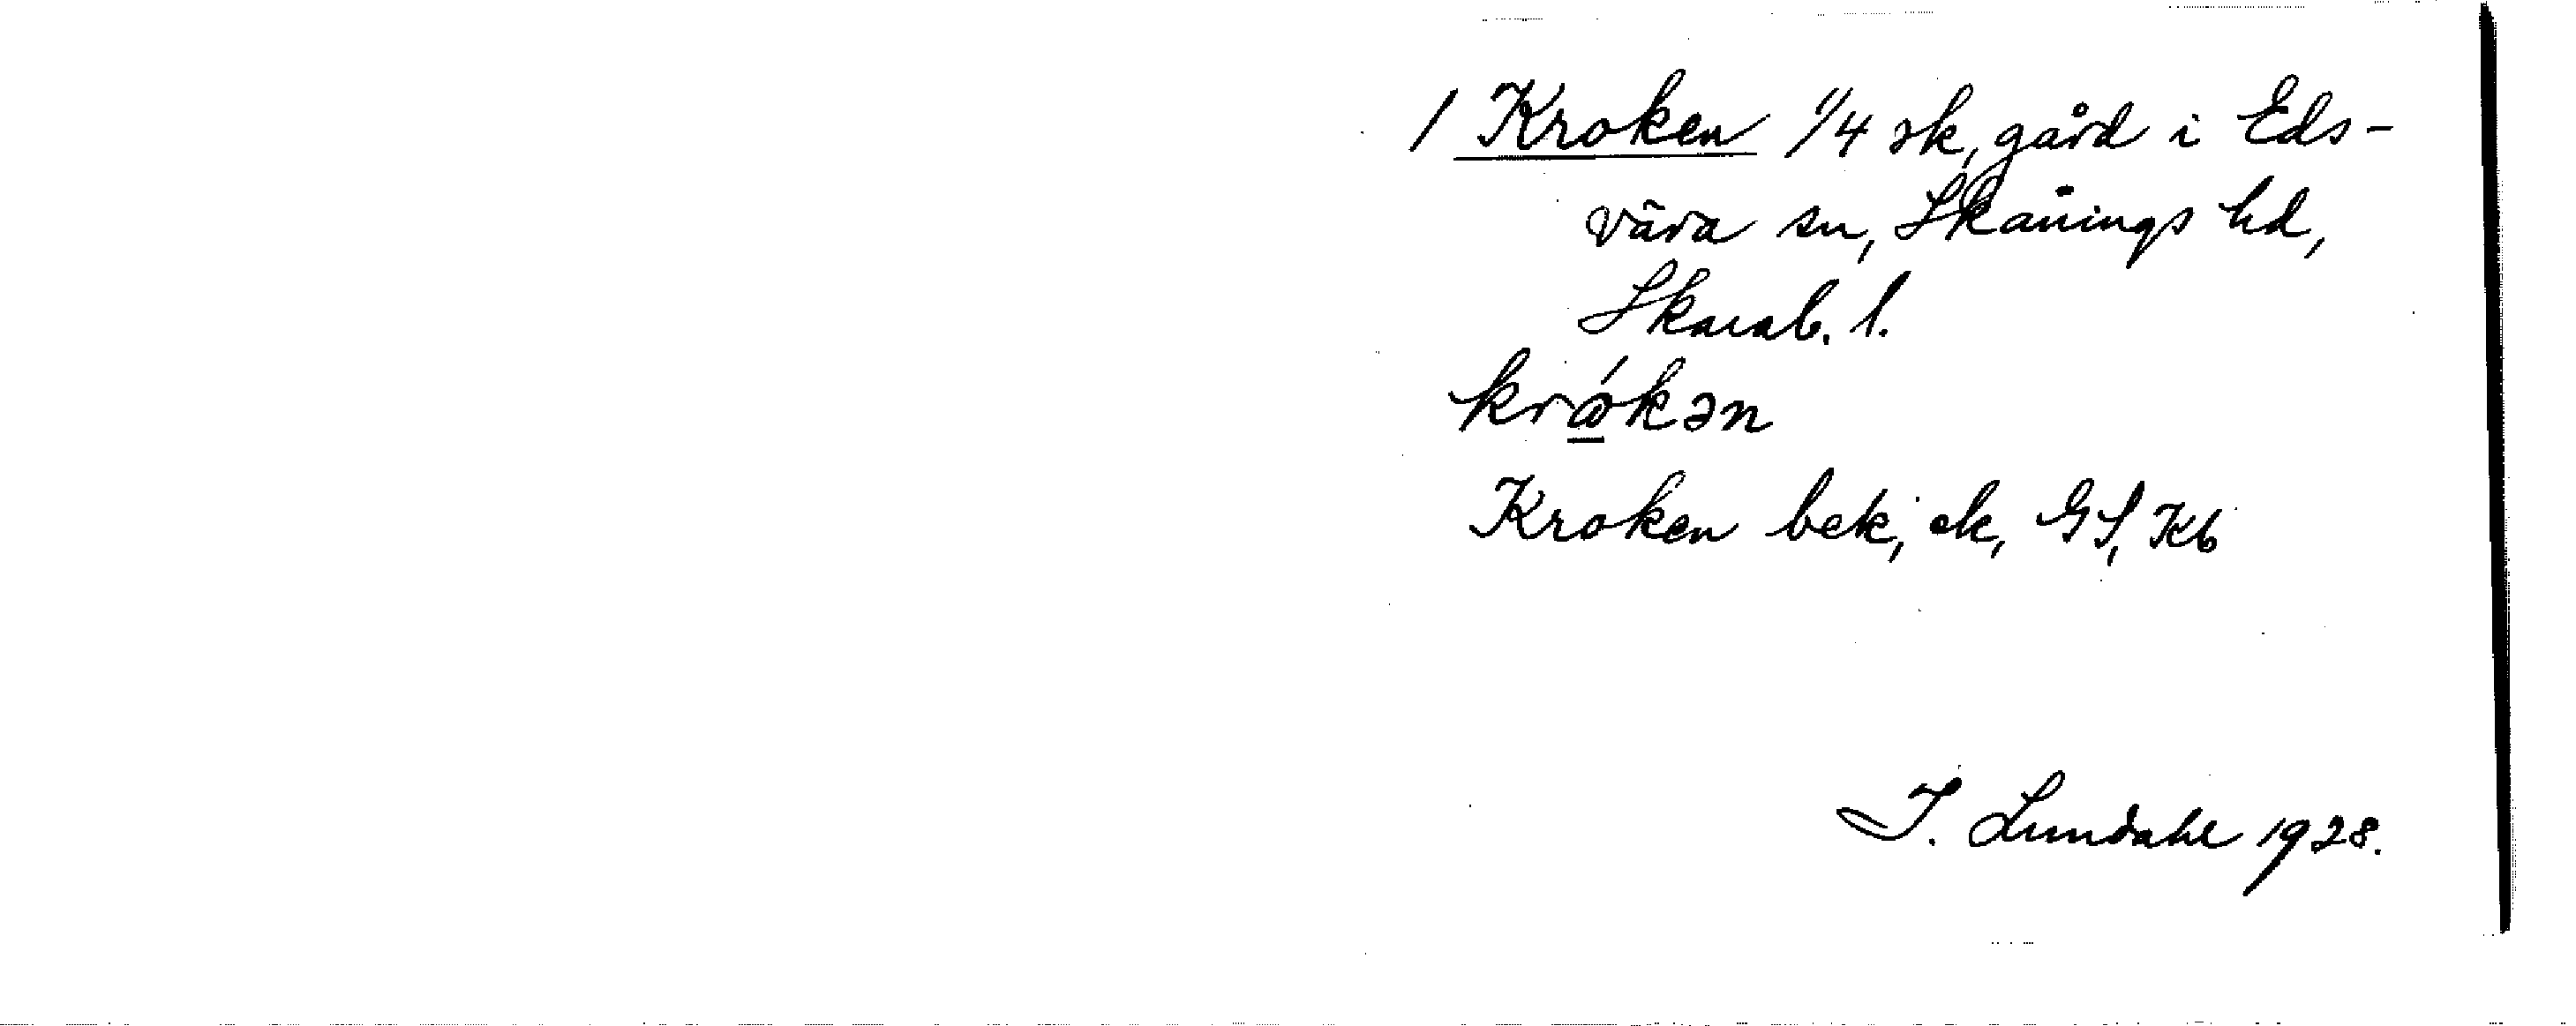 1 Kroken 1/4 sk, gård i Eds-
vära sn, Skånings hd,
Skarab. l.
krώkən
Kroken bek, ek, GS, Kb
I. Lundahl 1928.